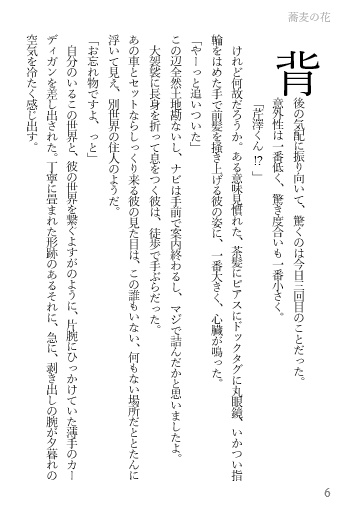 蕎麦の花
背後の気配に振り向いて、驚くのは今日三回目のことだった。
意外性は一番低く、驚き度合いも一番小さく。
「芹澤くん!?」
けれど何故だろうか。ある意味見慣れた、茶髪にピアスにドックタグに丸眼鏡、いかつい指
輪をはめた手で前髪を掻き上げる彼の姿に、一番大きく、心臓が鳴った。
「やーっと追いついた」
この辺全然土地勘ないし、ナビは手前で案内終わるし、マジで詰んだかと思いましたよ。
大袈裟に長身を折って息をつく彼は、徒歩で手ぶらだった。
あの車とセットならしっくり来る彼の見た目は、この誰もいない、何もない場所だととたんに
浮いて見え、別世界の住人のようだ。
「お忘れ物ですよ、っと」
自分のいるこの世界と、彼の世界を繋ぐよすがのように、片腕にひっかけていた薄手のカー
ディガンを差し出された。丁寧に畳まれた形跡のあるそれに、急に、剥き出しの腕が夕暮れの
空気を冷たく感じ出す。
6